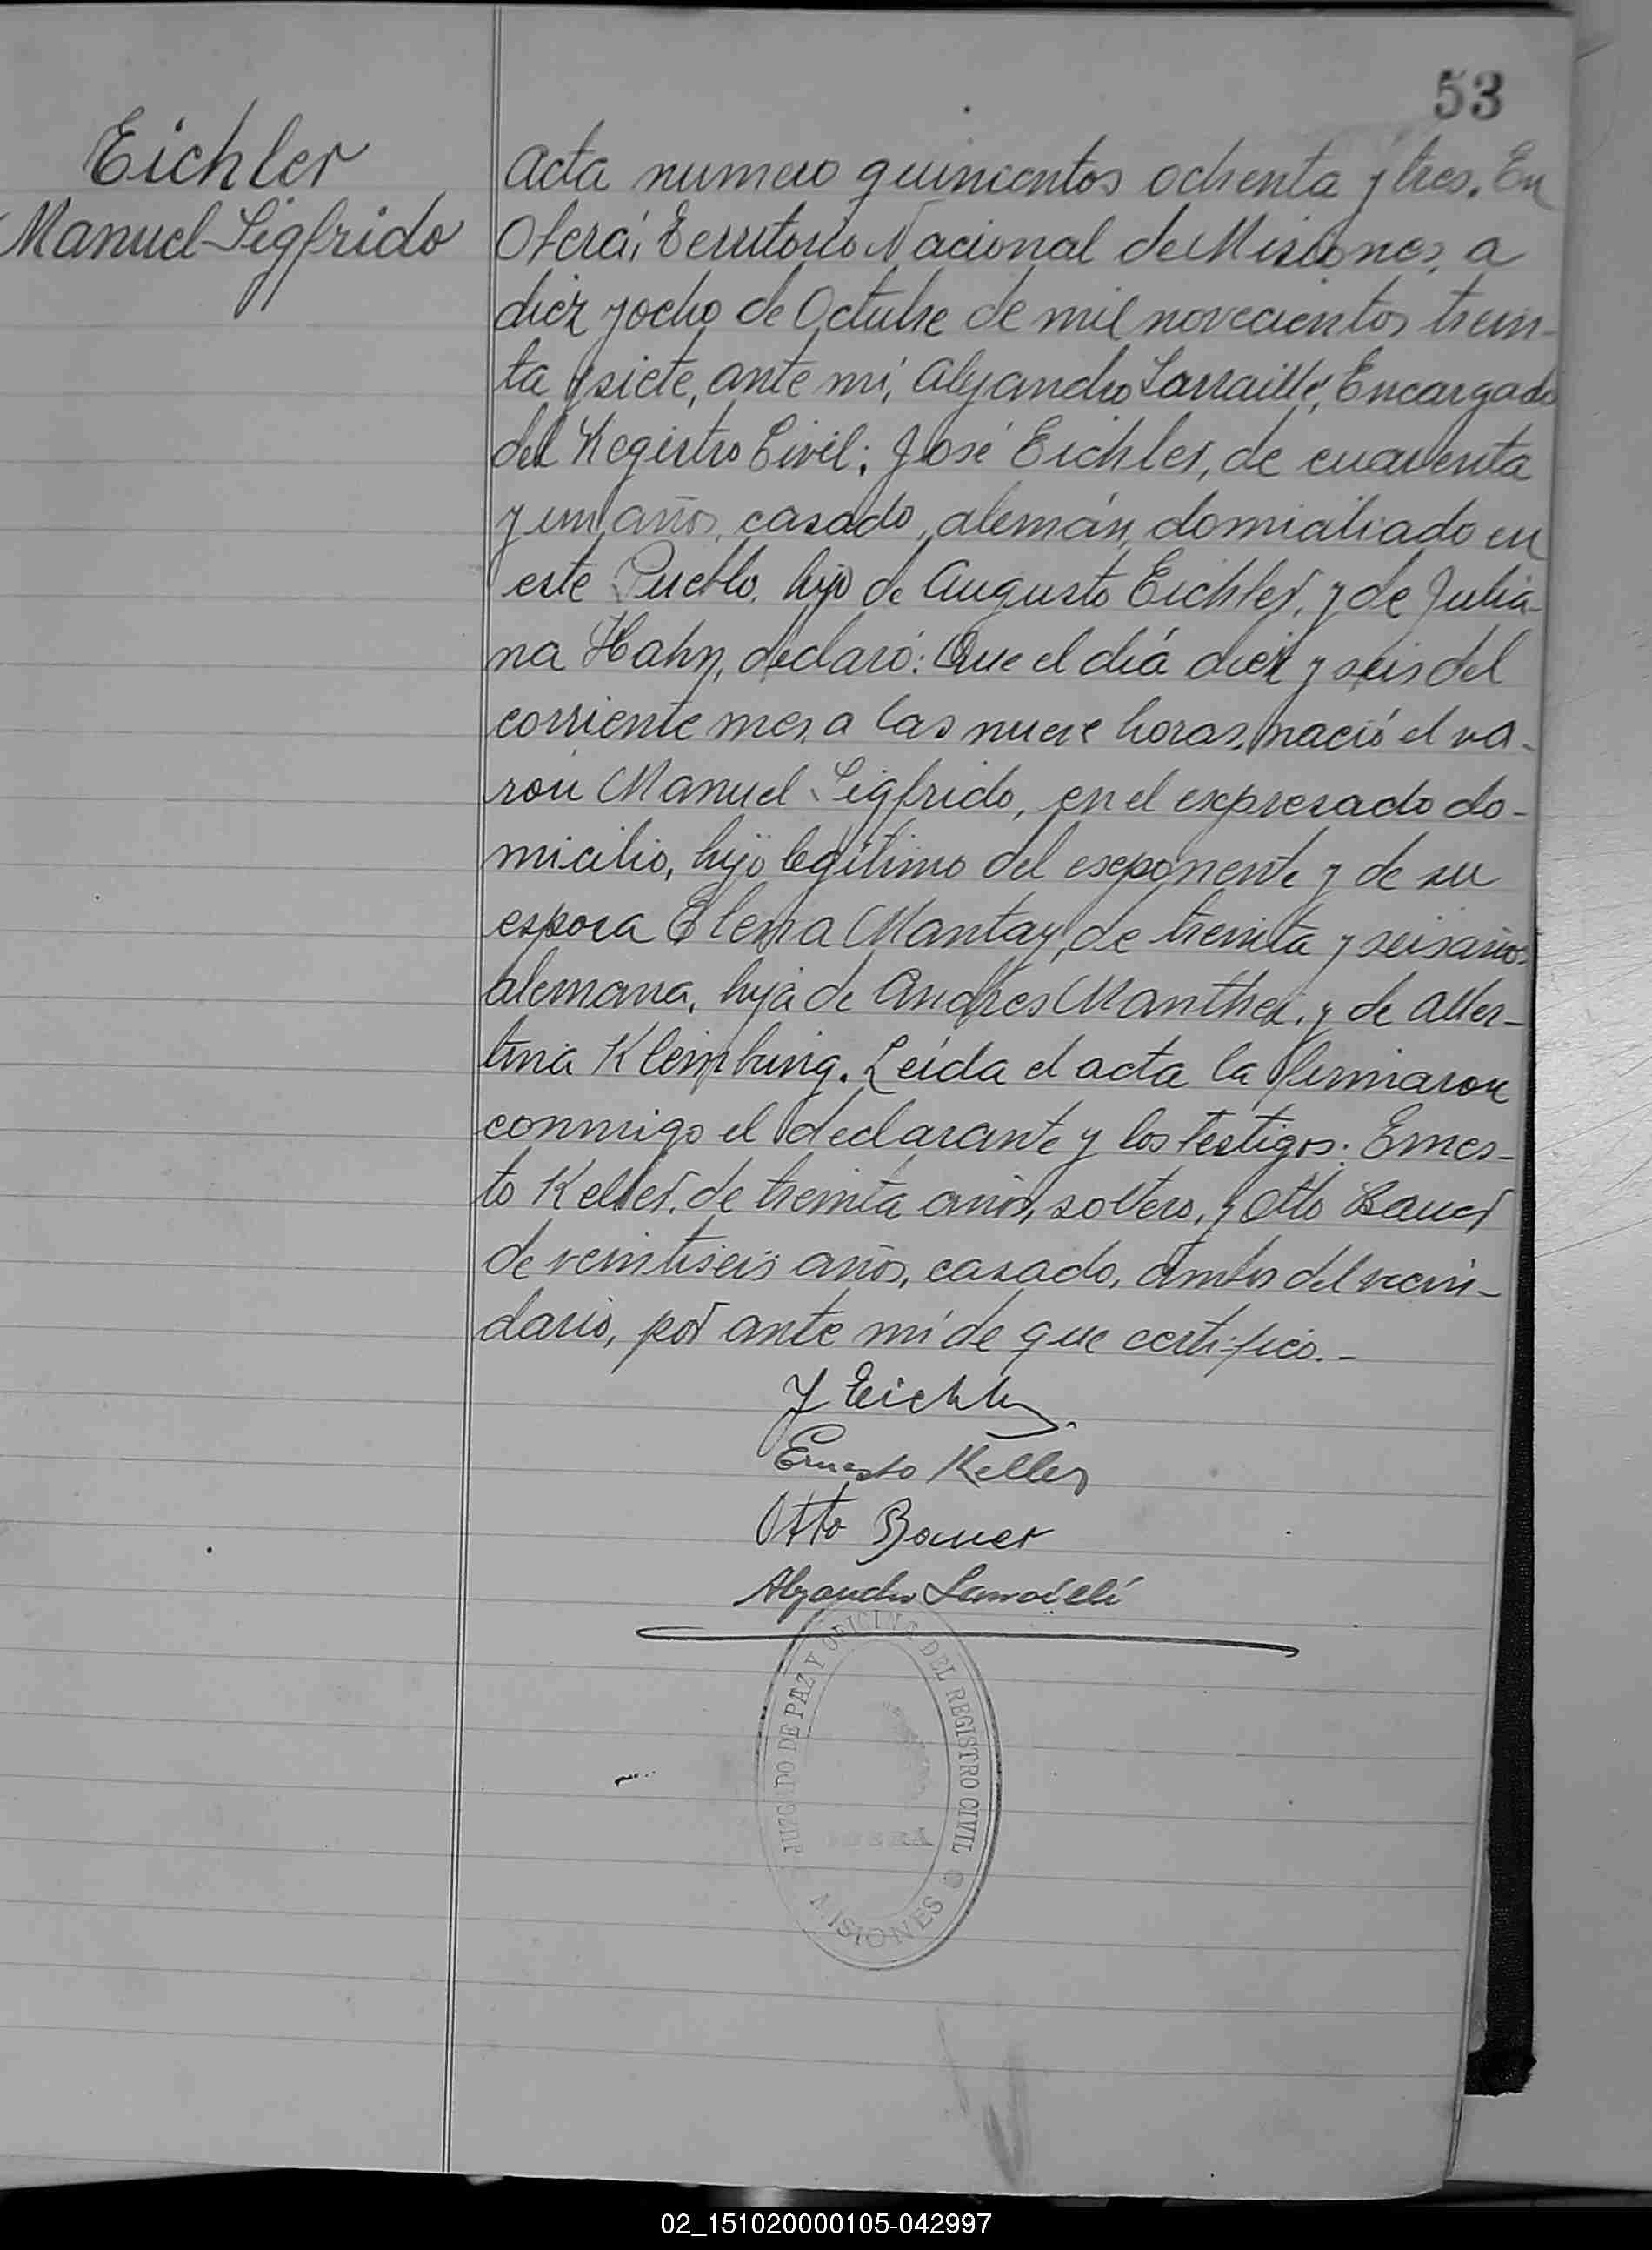 53
Eichler
Manuel Sigfrido
Acta numero quinientos ochenta y tres. En
Oberá, Territorio Nacional de Misiones, a
diez y ocho de Octubre de mil novecientos trein-
ta y siete, ante mí, Alejandro Larraillé, Encargado
del Registro Civil; José Eichler, de cuarenta
y un años, casado, alemán, domiciliado en
este Pueblo, hijo de Augusto Eichler, y de Julia-
na Hahn, declaró: Que el día diez y seis del
corriente mes, a las nueve horas, nació el va-
rón Manuel Sigfrido, en el expresado do-
micilio, hijo legítimo del exponente y de su
esposa Elena Mantay, de treinta y seis años,
alemana, hija de Andres Manthei, y de Alber-
tina Leída el acta la firmaron
conmigo el declarante y los testigos: Ernes-
to Keller, de treinta años, soltero, y Otto Bauer
de veintiseis años, casado, ambos del vecin-
dario, por ante mí de que certifico.-
J Eichler
Ernesto Keller
Otto Bauer
Alejandro Larraillé
JUZGADO DE PAZ Y OFICINA DEL REGISTRO CIVIL
MISIONES
02_151020000105-042997